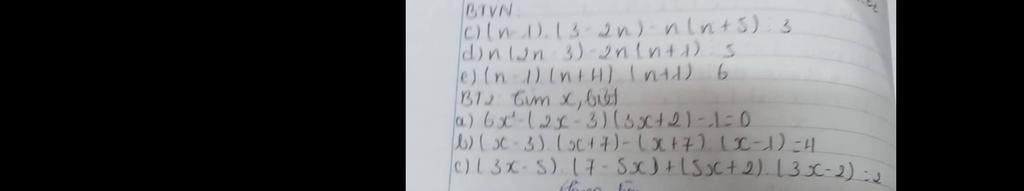 BTVN
c) (n-1).(3-2n)-n(n+5) ⋮ 3
d) n(2n-3)-2n(n+1) ⋮ 5
e) (n-1)(n+4) (n+1) 6
BT2: tìm x, biết
a) 6x² - (2x-3)(3x+2)-1=0
b) (x-3).(x+7)-(x+7).(x-1)=4
c) (3x-5).(7-5x)+(5x+2).(3x-2)=2